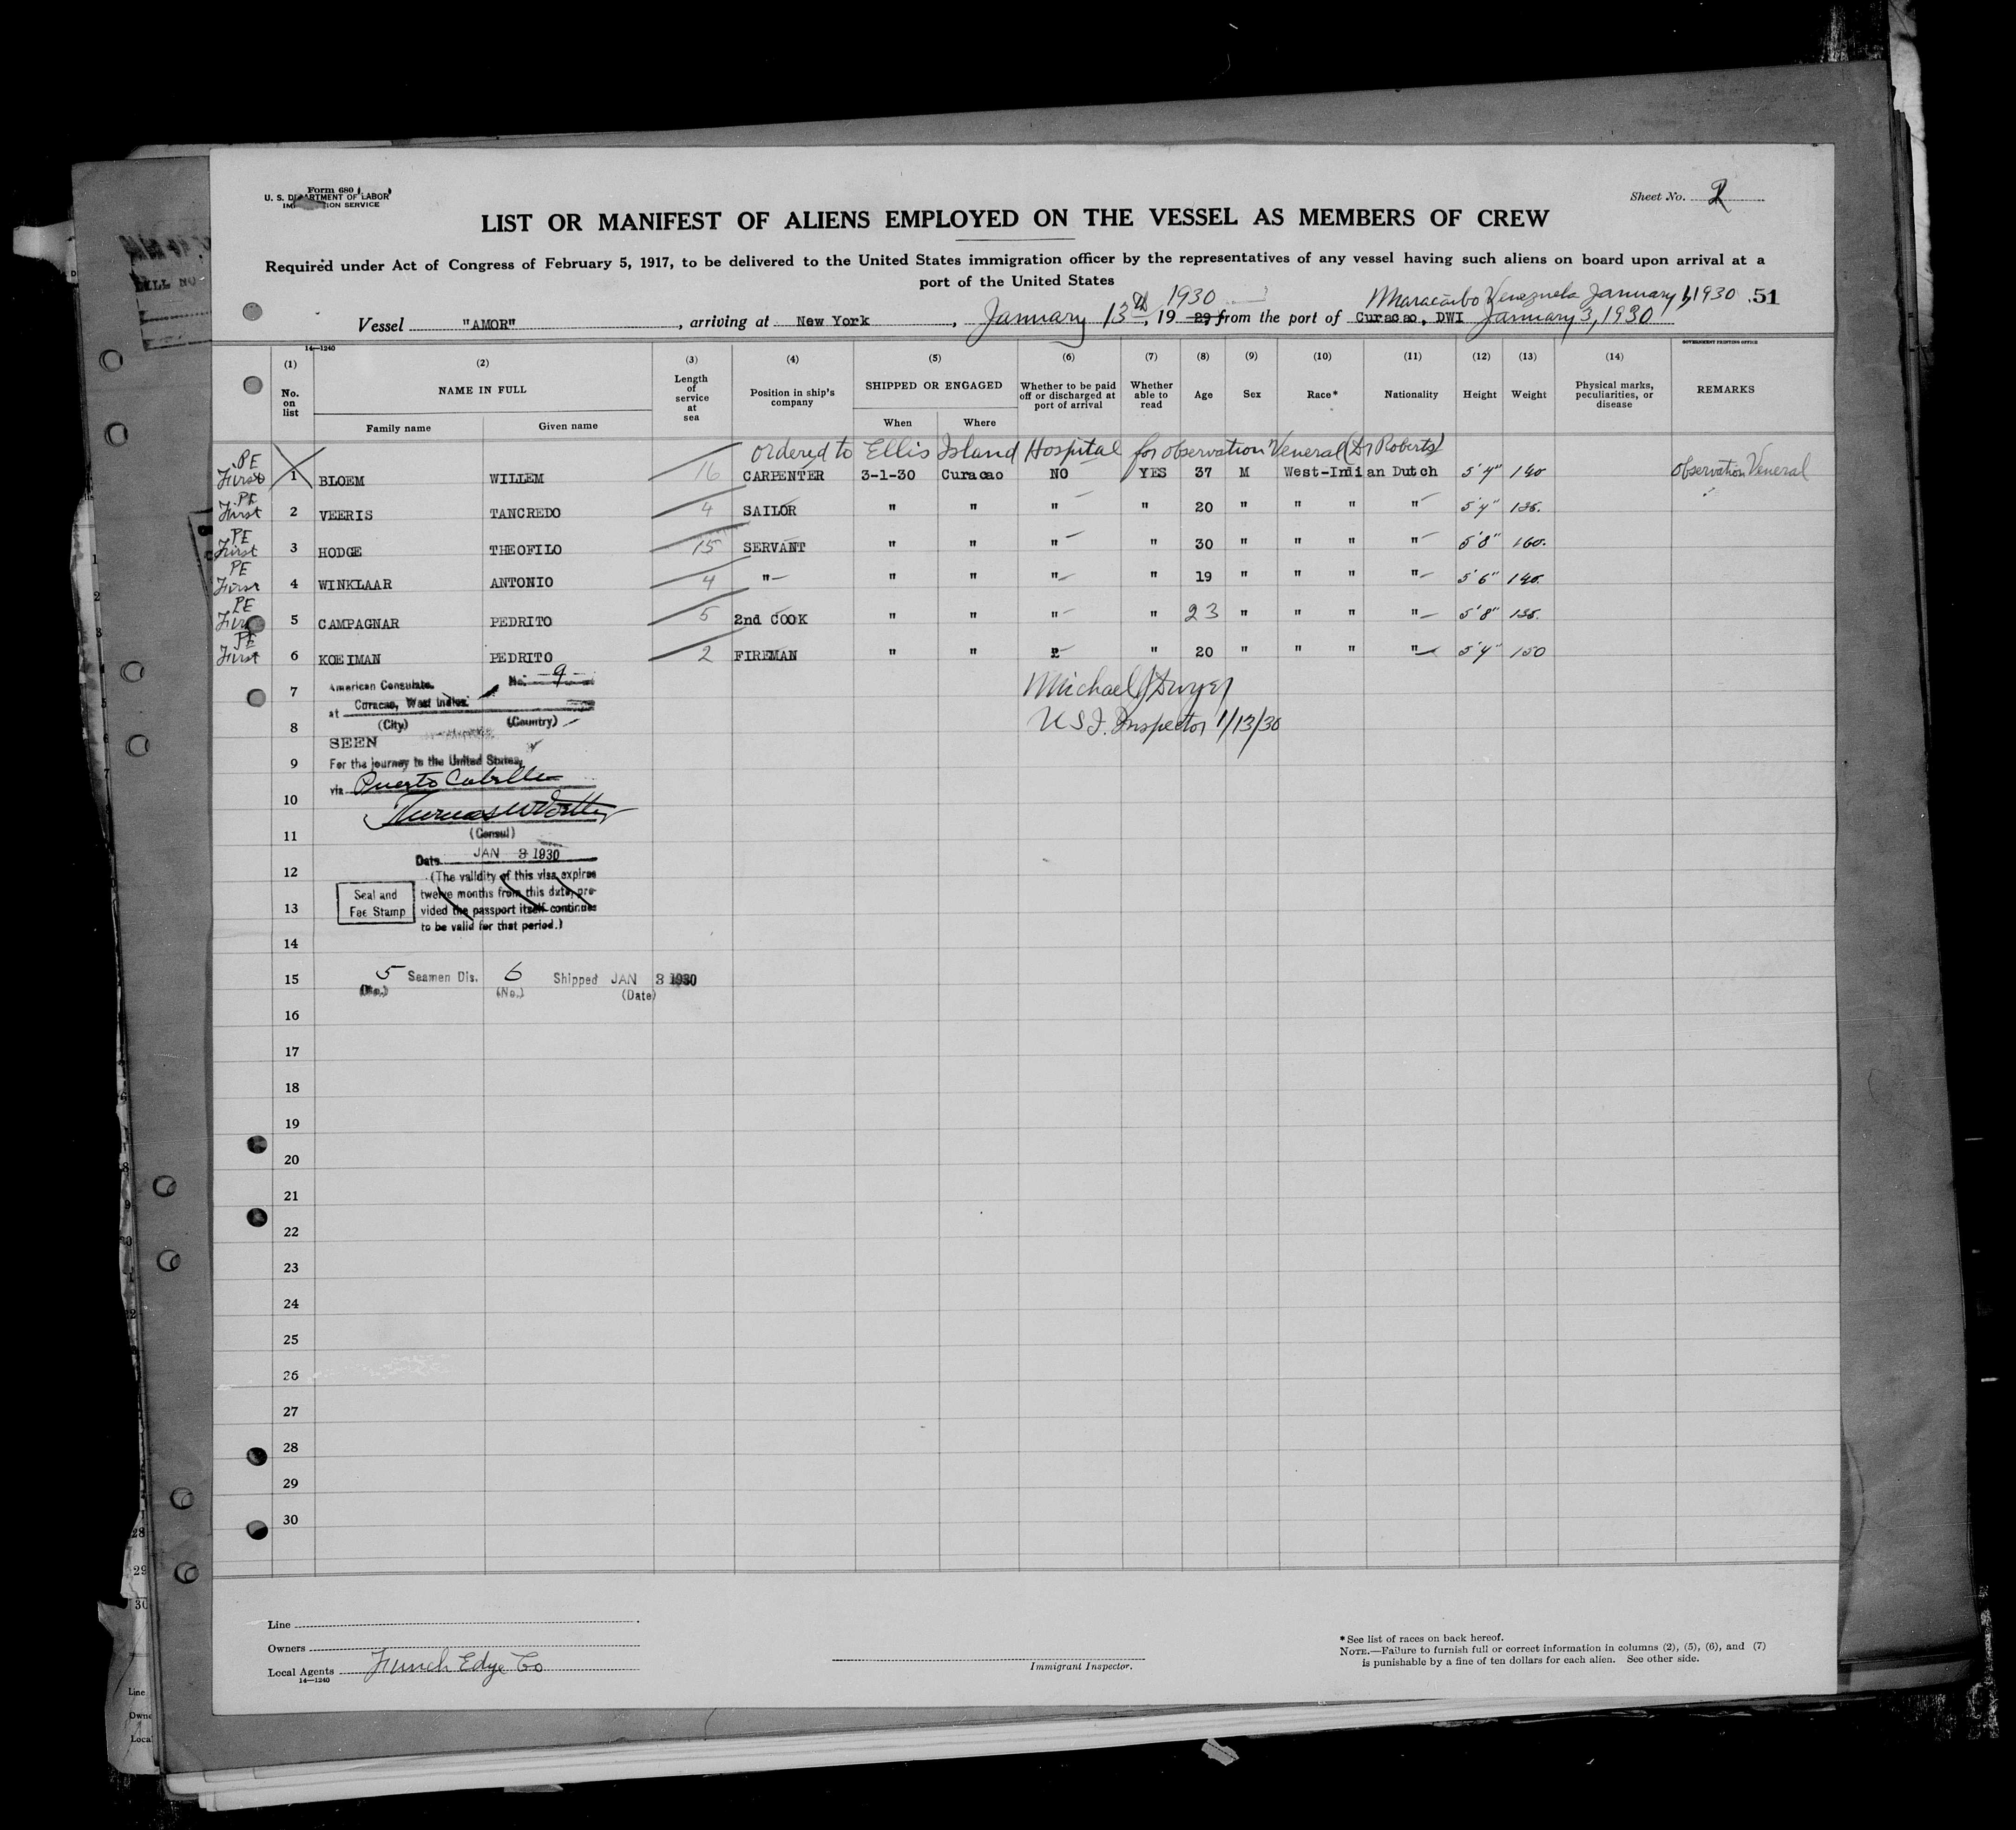 Form 680
U. S. DEPARTMENT OF LABOR
IMMIGRATION SERVICE
Sheet No. 2
LIST OR MANIFEST OF ALIENS EMPLOYED ON THE VESSEL AS MEMBERS OF CREW
Required under Act of Congress of February 5, 1917, to be delivered to the United States immigration officer by the representatives of any vessel having such aliens on board upon arrival at a
port of the United States
1930 Maracaibo Venezuela January 1, 1930 51
Vessel "AMOR", arriving at New York, January 13th, 19 29 from the port of Curacao, DWI January 3, 1930
14—1240
GOVERNMENT PRINTING OFFICE
(1) (2) (3) (4) (5) (6) (7) (8) (9) (10) (11) (12) (13) (14)
No. on list NAME IN FULL Length of service at sea Position in ship's company SHIPPED OR ENGAGED Whether to be paid off or discharged at port of arrival Whether able to read Age Sex Race* Nationality Height Weight Physical marks, peculiarities, or disease REMARKS
Family name Given name When Where
ordered to Ellis Island Hospital for observation Veneral (Dr Roberts)
PE First 1 BLOEM WILLEM 16 CARPENTER 3-1-30 Curacao NO YES 37 M West-Indian Dutch 5'4" 140 observation Veneral
PE First 2 VEERIS TANCREDO 4 SAILOR " " " " 20 " " " " 5'4" 135.
PE First 3 HODGE THEOFILO 15 SERVANT " " " " 30 " " " " 5'8" 160.
PE First 4 WINKLAAR ANTONIO 4 " " " " " 19 " " " " 5'6" 140.
PE First 5 CAMPAGNAR PEDRITO 5 2nd COOK " " " " 23 " " " " 5'8" 135.
PE First 6 KOEIMAN PEDRITO 2 FIREMAN " " " " 20 " " " " 5'4" 150
7 American Consulate. No. 9 Michael J Dwyer
at Curacao, West Indies.
8 (City) (Country) U S I. Inspector 1/13/30
SEEN
9 For the journey to the United States,
via Puerto Cabello
10
11 (Consul)
Date JAN 3 1930
12 (The validity of this visa expires
Seal and twelve months from this date, pro-
13 Fee Stamp vided the passport itself continues
to be valid for that period.)
14
15 5 Seamen Dis. 6 Shipped JAN 3 1930
(No.) (No.) (Date)
16
17
18
19
20
21
22
23
24
25
26
27
28
29
30
Line
Owners
Local Agents Funch Edye Co
14—1240
Immigrant Inspector.
*See list of races on back hereof.
NOTE.—Failure to furnish full or correct information in columns (2), (5), (6), and (7)
is punishable by a fine of ten dollars for each alien. See other side.